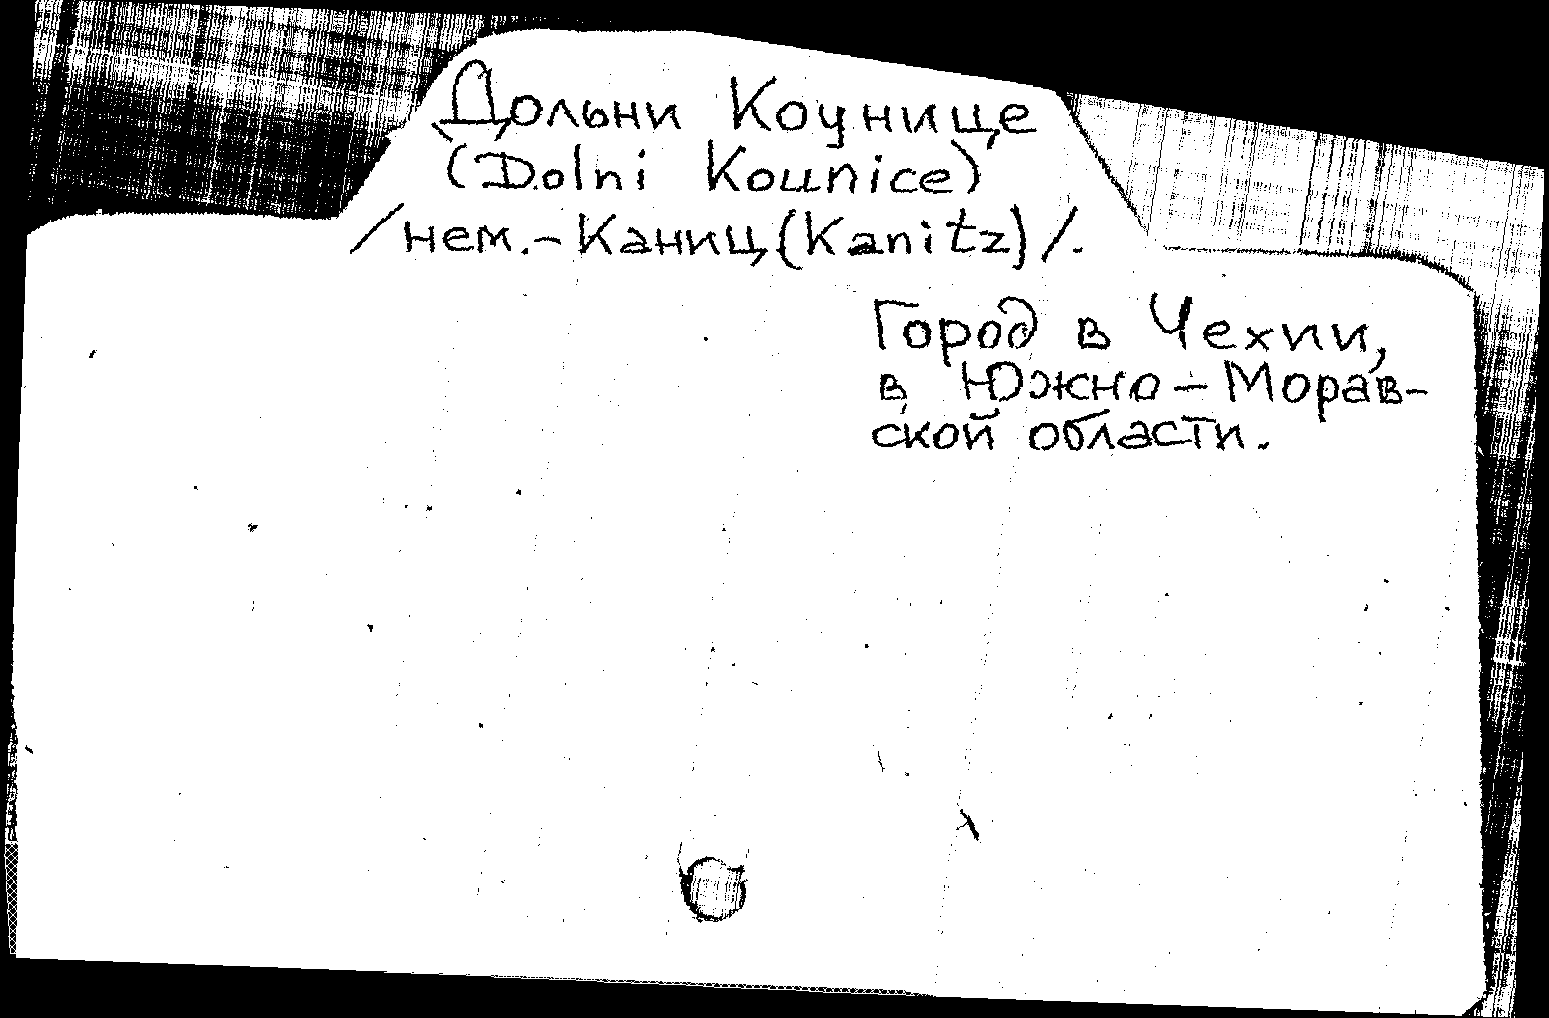 Дольни Коунице
(Dolni Kounice)
/нем.-Каниц(Kanitz)/.
Город в Чехии,
в Южно-Морав-
ской области.